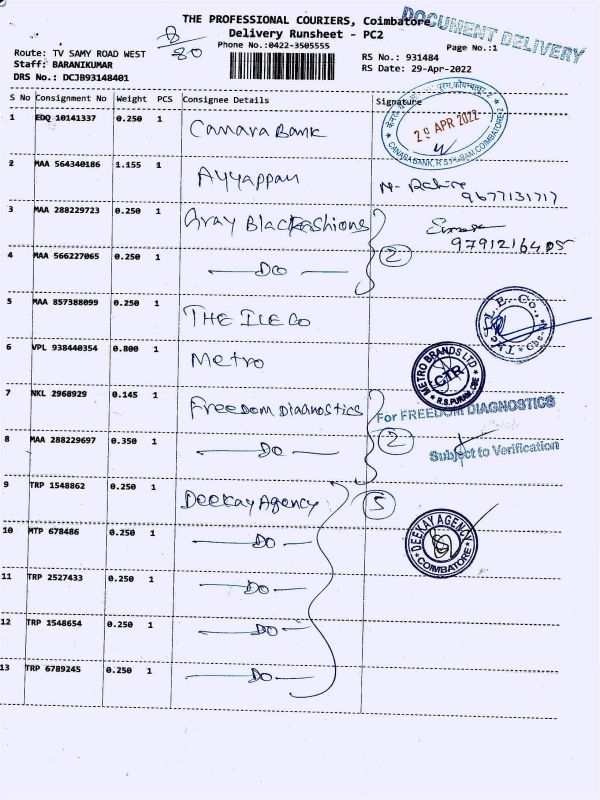 THE PROFESSIONAL COURIERS, Coimbatore
DOCUMENT DELIVERY
Delivery Runsheet - PC2
Phone No.:0422-3505555
Page No.:1
Route: TV SAMY ROAD WEST
Staff: BARANIKUMAR
DRS No.: DCJB93148401
RS No.: 931484
RS Date: 29-Apr-2022
B/80
S No Consignment No Weight PCS Consignee Details Signature
1 EDQ 10141337 0.250 1 Canara Bank
29 APR 2022
CANARA BANK, R.S.PURAM, COIMBATORE-2
2 MAA 564340186 1.155 1 Ayyappan
9677131717
3 MAA 288229723 0.250 1 Gray Black Fashions
9791216405
4 MAA 566227065 0.250 1 — Do —
2
5 MAA 857388099 0.250 1 THE ILE Co
6 VPL 938440354 0.800 1 Metro
METRO BRANDS LTD
CTR
R.S.PURAM, CBE
7 NKL 2968929 0.145 1 Freedom Diagnostics
For FREEDOM DIAGNOSTICS
8 MAA 288229697 0.350 1 — Do —
2
Subject to Verification
9 TRP 1548862 0.250 1 Deekay Agency
5
DEEKAY AGENCY
COIMBATORE
10 MTP 678486 0.250 1 — Do —
11 TRP 2527433 0.250 1 — Do —
12 TRP 1548654 0.250 1 — Do —
13 TRP 6789245 0.250 1 — Do —